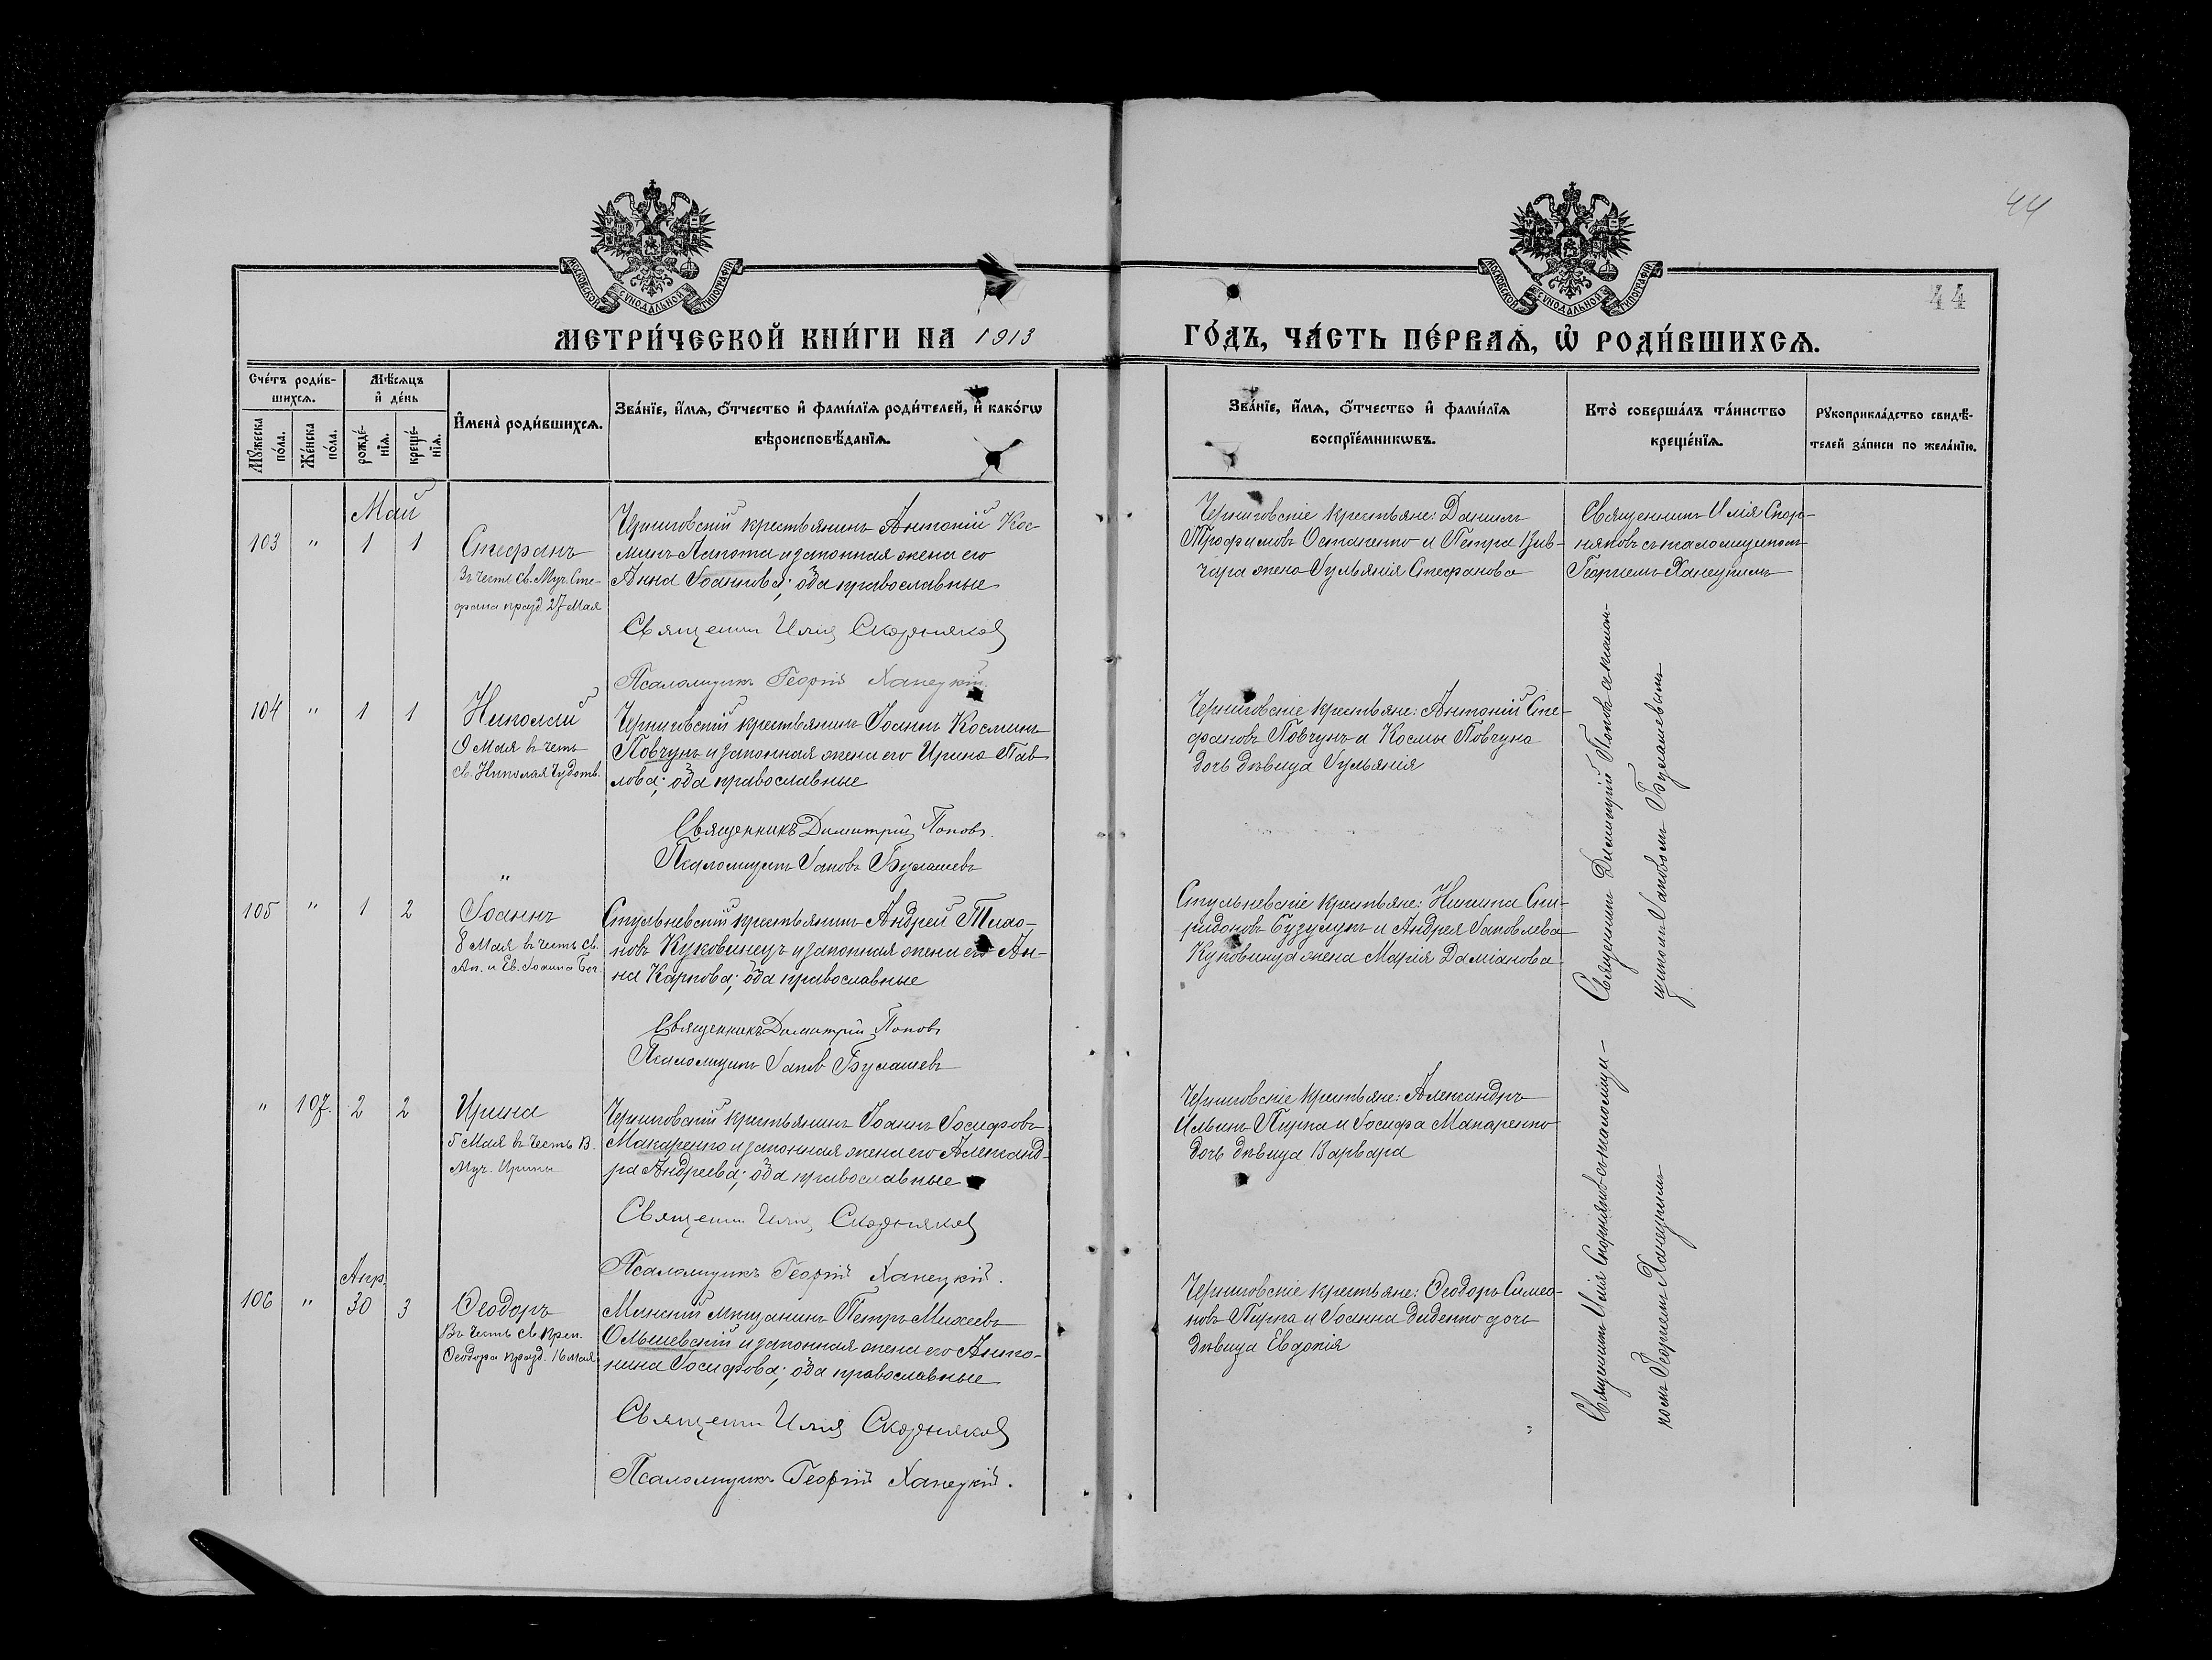 44
44
МОСКОВСКОЙ СѴНОДАЛЬНОЙ ТИПОГРАФІИ
МОСКОВСКОЙ СѴНОДАЛЬНОЙ ТИПОГРАФІИ
МЕТРИ́ЧЕСКОЙ КНИ́ГИ НА 1913
ГО́ДЪ, ЧА́СТЬ ПЕ́РВАѦ, Ѡ҆ РОДИ́ВШИХСѦ.
Сче́тъ роди́в-
шихсѧ.
Мꙋ́жеска
по́ла.
Же́нска
по́ла.
Мѣ́сѧцъ
и҆ де́нь
рожде́-
нїѧ.
креще́-
нїѧ.
И҆мена̀ роди́вшихсѧ.
Зва́нїе, и҆́мѧ, ѻ҆́тчество и҆ фами́лїѧ роди́телей, и҆ како́гѡ
вѣроисповѣ́данїѧ.
Зва́нїе, и҆́мѧ, ѻ҆́тчество и҆ фами́лїѧ
воспрїе́мникѡвъ.
Кто̀ соверша́лъ та́инство
креще́нїѧ.
Рꙋкоприкла́дство свидѣ́-
телей за́писи по жела́нїю.
Май
103 " 1 1
Стефанъ
Въ честь св. Муч. Сте-
фана празд. 27 Мая
Черниговскій крестьянинъ Антоній Кос-
минъ Лапота и законная жена его
Анна Іоаннова; оба православные
Священник Илія Скорняковъ
Псаломщикъ Георгій Ханецкій.
Черниговскіе крестьяне: Даниилъ
Трофимовъ Остапенко и Петра
жена Іульянія Стефанова
Священникъ Илія Скор-
няковъ съ псаломщикомъ
Георгіемъ Ханецкимъ
104 " 1 1
Николай
9 Мая въ честь
св. Николая Чудотв.
Черниговскій крестьянинъ Іоаннъ Косминъ
Повчунъ и законная жена его Ирина Пав-
лова; оба православные
Священникъ Димитрій Поповъ.
Псаломщикъ Іаковъ Булашевъ
Черниговскіе крестьяне: Антоній Сте-
фановъ Повчунъ и Космы Повчуна
дочь дѣвица Іульянія
Священникъ Димитрій Поповъ съ псалом-
щикомъ Іаковомъ Булашевымъ
"
105 " 1 2
Іоаннъ
8 Мая въ честь св.
Ап. и Ев. Іоанна Бог.
Стульневскій крестьянинъ Андрей Тихо-
новъ Куковинецъ и законная жена его Ан-
на Карпова; оба православные
Священникъ Димитрій Поповъ
Псаломщикъ Іаков Булашевъ
Стульневскіе крестьяне: Никита Спи-
ридоновъ Бузулукъ и Андрея Іаковлева
Куковинца жена Марія Даміанова
" 107. 2 2
Ирина
5 Мая въ честь В.
Муч. Ирины
Черниговскій крестьянинъ Іоаннъ Іосифовъ
Макаренко и законная жена его Александ-
ра Андреева; оба православные
Священник Илія Скорняковъ
Псаломщикъ Георгій Ханецкій.
Черниговскіе крестьяне: Александръ
Ильинъ Пирка и Іосифа Макаренко
дочь дѣвица Варвара
Священникъ Илія Скорняковъ съ псаломщи-
комъ Георгіемъ Ханецкимъ
Апр.
106 " 30 3
Ѳеодоръ
Въ честь св. преп.
Ѳеодора празд. 16 Мая
Минскій мѣщанинъ Петръ Михеевъ
Ольшевскій и законная жена его Анто-
нина Іосифова; оба православные
Священник Илія Скорняковъ
Псаломщикъ Георгій Ханецкій.
Черниговскіе крестьяне: Ѳеодоръ Симео-
новъ Пирка и Іоанна Диденко дочь
дѣвица Евдокія